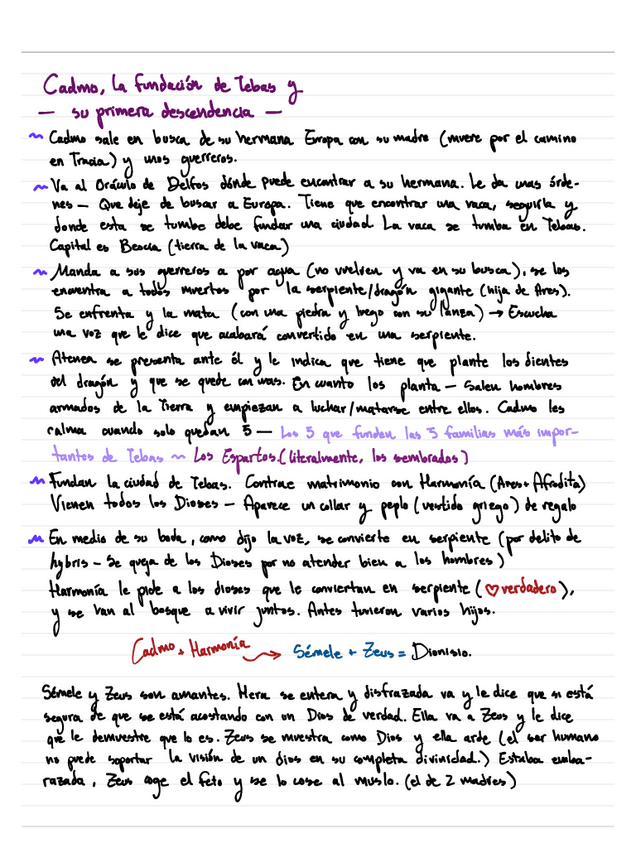 Cadmo, la fundación de Tebas y
— su primera descendencia —
~ Cadmo sale en busca de su hermana Europa con su madre (muere por el camino
en Tracia) y unos guerreros.
~ Va al Oráculo de Delfos dónde puede encontrar a su hermana. Le da unas órde-
nes — Que deje de buscar a Europa. Tiene que encontrar una vaca, seguirla y
donde esta se tumbe debe fundar una ciudad La vaca se tumba en Tebas.
Capital es Beocia (tierra de la vaca)
~ Manda a sus guerreros a por agua (no vuelven y va en su busca), se los
encuentra a todos muertos por la serpiente/dragón gigante (hija de Ares).
Se enfrenta y la mata (con una piedra y luego con su lanza) → Escucha
una voz que le dice que acabará convertido en una serpiente.
~ Atenea se presenta ante él y le indica que tiene que plante los dientes
del dragón y que se quede con unos. En cuanto los planta — Salen hombres
armados de la Tierra y empiezan a luchar/matarse entre ellos. Cadmo les
calma cuando solo quedan 5 — Los 5 que fundan las 5 familias más impor-
tantes de Tebas ~ Los Espartos. (literalmente, los sembrados)
~ Fundan la ciudad de Tebas. Contrae matrimonio con Harmonía (Ares + Afrodita)
Vienen todos los Dioses — Aparece un collar y peplo (vestido griego) de regalo
~ En medio de su boda, como dijo la voz, se convierte en serpiente (por delito de
hybris – Se queja de los Dioses por no atender bien a los hombres)
Harmonía le pide a los dioses que le conviertan en serpiente (♡ verdadero),
y se van al bosque a vivir juntos. Antes tuvieron varios hijos.
Cadmo + Harmonía → Sémele + Zeus = Dionisio.
Sémele y Zeus son amantes. Hera se entera y disfrazada va y le dice que si está
segura de que se está acostando con un Dios de verdad. Ella va a Zeus y le dice
que le demuestre que lo es. Zeus se muestra como Dios y ella arde (el ser humano
no puede soportar la visión de un dios en su completa divinidad.) Estaba emba-
razada, Zeus coge el feto y se lo cose al muslo. (el de 2 madres)